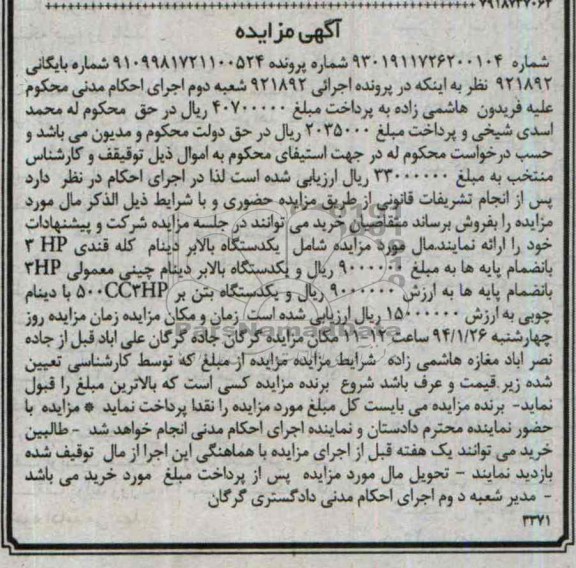 ۷۹۱۸۷۲۷۰۶۲
آگهی مزایده
شماره ۹۳۰۱۹۱۱۷۲۶۲۰۰۱۰۴ شماره پرونده ۹۱۰۹۹۸۱۷۲۱۱۰۰۵۲۴ شماره بایگانی
۹۲۱۸۹۲ نظر به اینکه در پرونده اجرائی ۹۲۱۸۹۲ شعبه دوم اجرای احکام مدنی محکوم
علیه فریدون هاشمی زاده به پرداخت مبلغ ۴۰۷۰۰۰۰۰ ریال در حق محکوم له محمد
اسدی شیخی و پرداخت مبلغ ۲۰۳۵۰۰۰ ریال در حق دولت محکوم و مدیون می باشد و
حسب درخواست محکوم له در جهت استیفای محکوم به اموال ذیل توقیقف و کارشناس
منتخب به مبلغ ۳۳۰۰۰۰۰۰ ریال ارزیابی شده است لذا در اجرای احکام در نظر دارد
پس از انجام تشریفات قانونی از طریق مزایده حضوری و با شرایط ذیل الذکر مال مورد
مزایده را بفروش برساند متقاضیان خرید می توانند در جلسه مزایده شرکت و پیشنهادات
خود را ارائه نمایند.مال مورد مزایده شامل یکدستگاه بالابر دینام کله قندی ۳ HP
بانضمام پایه ها به مبلغ ۹۰۰۰۰۰۰ ریال و یکدستگاه بالابر دینام چینی معمولی ۳HP
بانضمام پایه ها به ارزش ۹۰۰۰۰۰۰ ریال و یکدستگاه بتن بر ۵۰۰CC۳HP با دینام
چوبی به ارزش ۱۵۰۰۰۰۰۰ ریال ارزیابی شده است زمان و مکان مزایده زمان مزایده روز
چهارشنبه ۹۴/۱/۲۶ ساعت ۱۲-۱۱ مکان مزایده گرگان جاده گرگان علی اباد قبل از جاده
نصر اباد مغازه هاشمی زاده شرایط مزایده مزایده از مبلغ که توسط کارشناسی تعیین
شده زیر قیمت و عرف باشد شروع برنده مزایده کسی است که بالاترین مبلغ را قبول
نماید- برنده مزایده می بایست کل مبلغ مورد مزایده را نقدا پرداخت نماید * مزایده با
حضور نماینده محترم دادستان و نماینده اجرای احکام مدنی انجام خواهد شد - طالبین
خرید می توانند یک هفته قبل از اجرای مزایده با هماهنگی این اجرا از مال توقیف شده
بازدید نمایند - تحویل مال مورد مزایده پس از پرداخت مبلغ مورد خرید می باشد
- مدیر شعبه د وم اجرای احکام مدنی دادگستری گرگان
۳۳۷۱
ParsNamadData